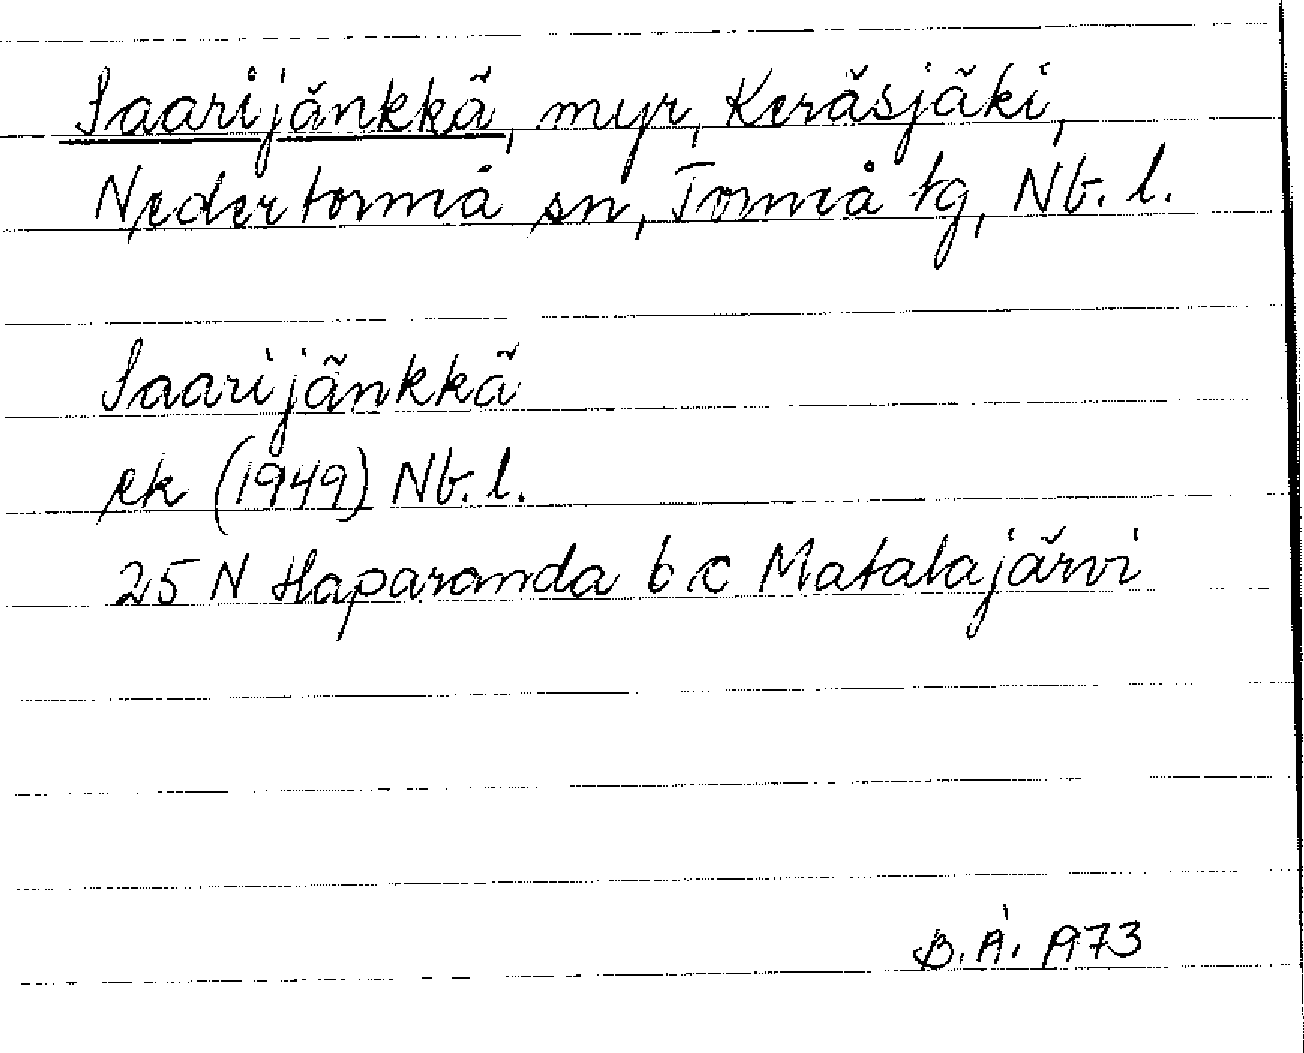 Saarijänkkä, myr, Keräsjäki,
Nedertorneå sn, Torneå tg, Nb. l.
Saarijänkkä
ek (1949) Nb. l.
25 N Haparanda b c Matalajärvi
B. Å. 1973